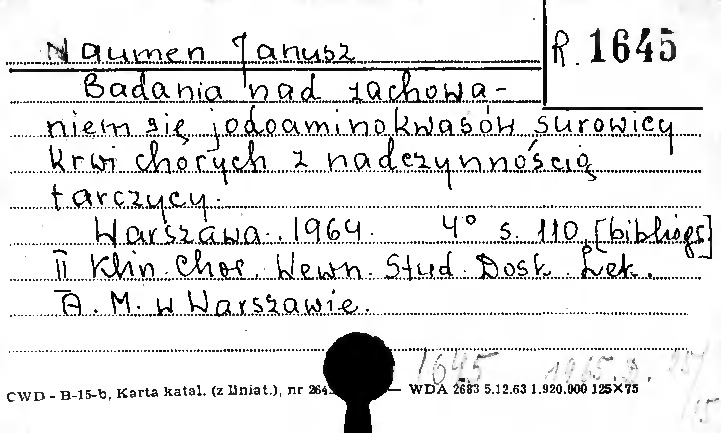 Naumen Janusz R. 1645
Badania nad zachowa-
niem się jodoaminokwasów surowicy
krwi chorych z nadczynnością
tarczycy.
Warszawa. 1964. 4° s. 110, [bibliogr]
II Klin. Chor. Wewn. Stud. Dosk. Lek.
A. M. w Warszawie.
1645 1965.D. 25/
15
CWD - B-15-b, Karta katal. (z Uniat.), nr 264 — WDA 2683 5.12.63 1.920.000 125×75